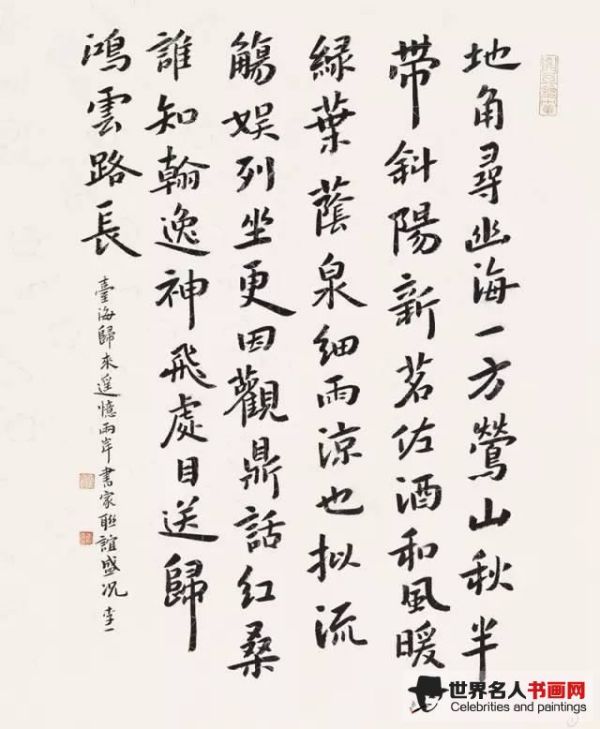 地角尋幽海一方鶯山秋半
帶斜陽新茗佐酒和風暖
綠葉蔭泉細雨涼也拟流
觴娱列坐更因觀鼎話紅桑
誰知翰逸神飛處目送歸
鴻雲路長
臺海歸來遥憶兩岸書家聯誼盛况 李一
世界名人书画网
Celebrities and paintings